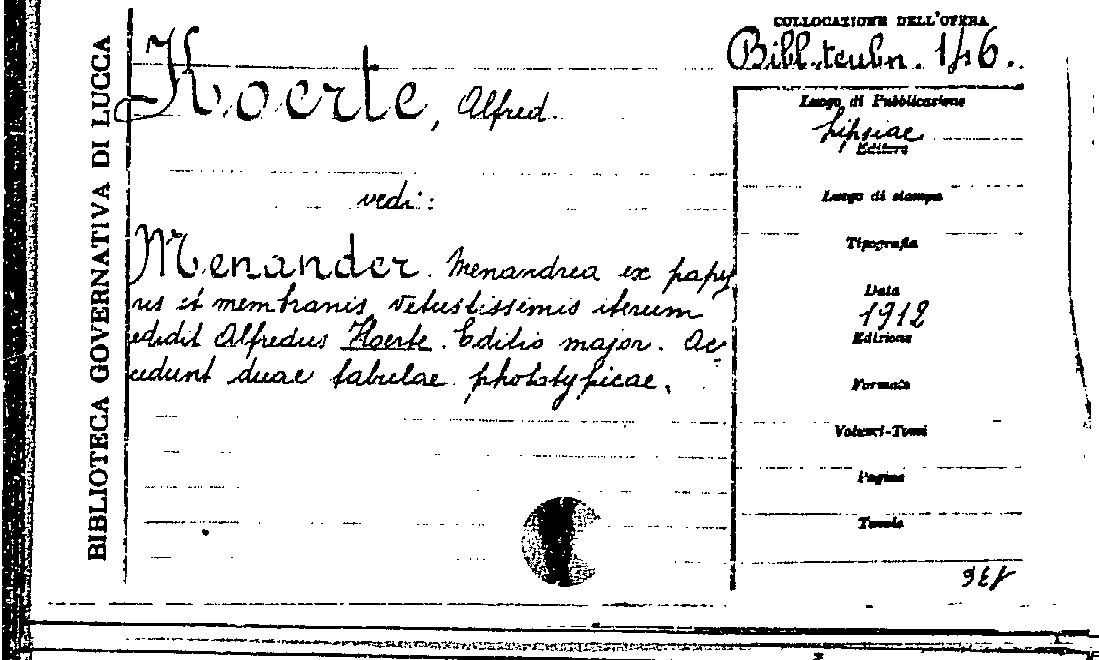 BIBLIOTECA GOVERNATIVA DI LUCCA
COLLOCAZIONE DELL'OPERA
Bibl. teubn. 146.
Koerte, Alfred.
vedi:
Menander. Menandrea ex papy
ris et membranis vetustissimis iterum
edidit Alfredus Koerte. Editio major. Ac
cedunt duae tabulae phototypicae.
Luogo di Pubblicazione
Lipsiae
Editore
Luogo di stampa
Tipografia
Data
1912
Edizione
Formato
Volumi-Tomi
Pagine
Tavole